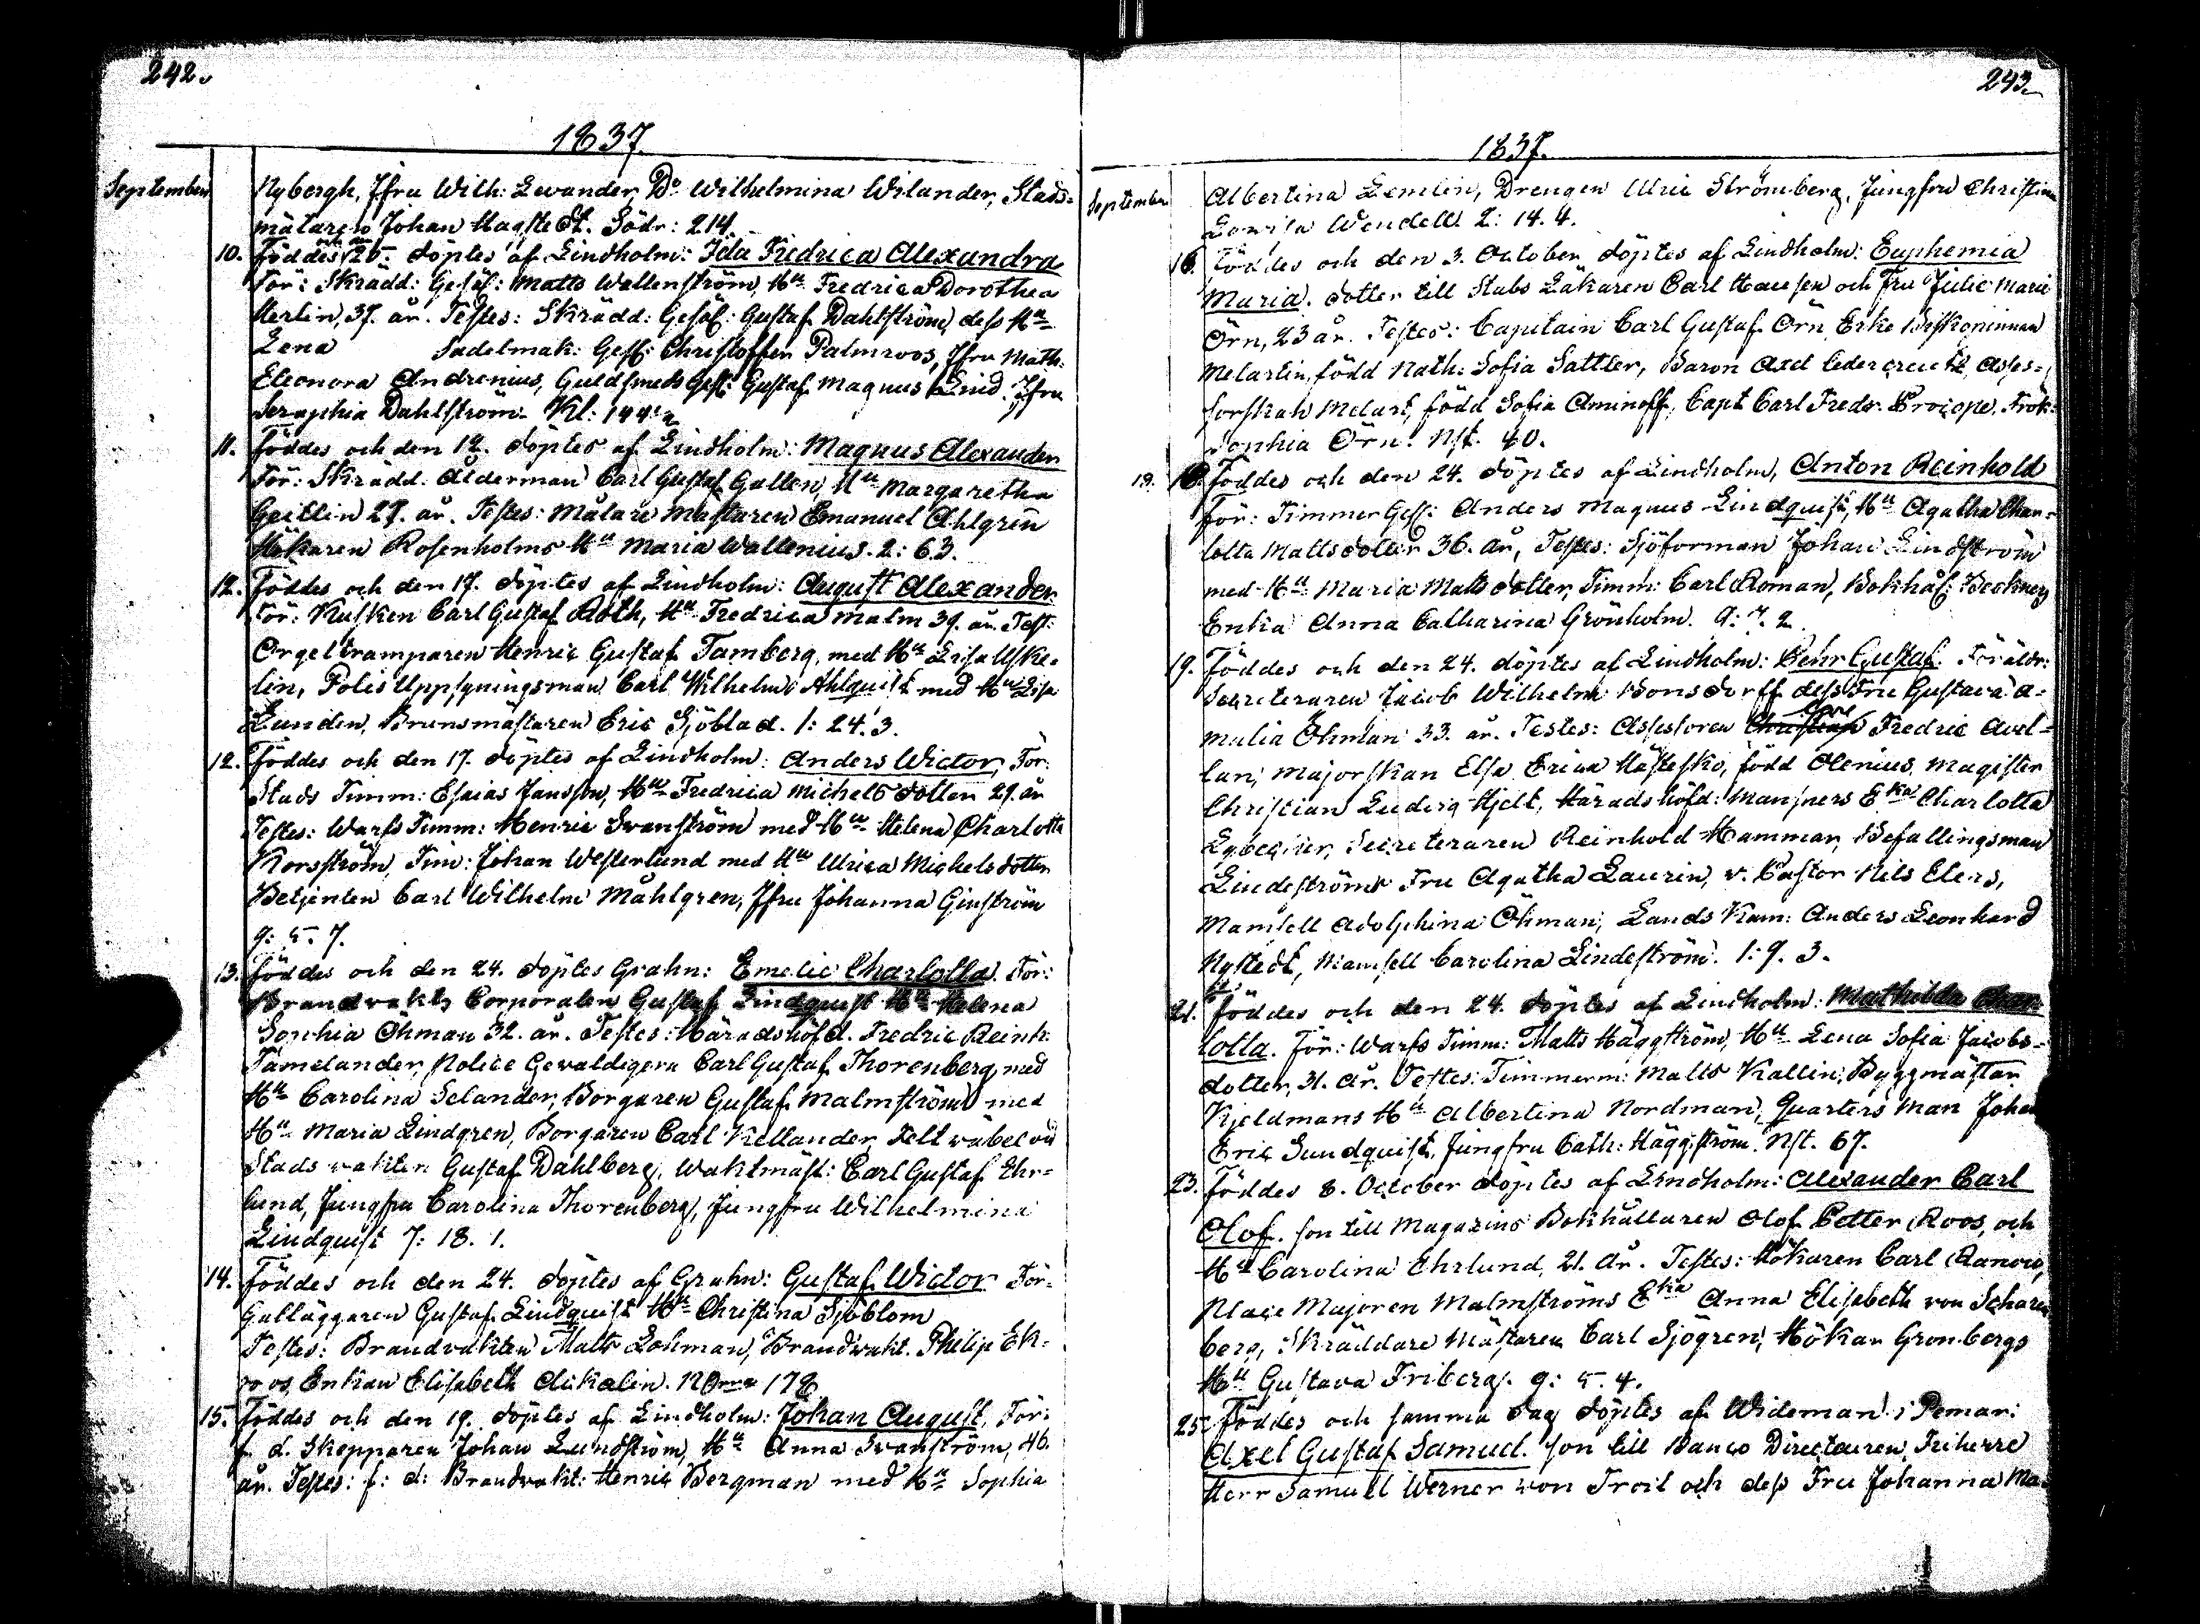 242.
1837.
September
Nybergh, Jfru Wilh: Levander, Do Wilhelmina Wilander, Stads=
mätaren Johan Hagstedt. Södr: 214.
10. Föddes och den 25. döptes af Lindholm: Ida Fredrica Alexandra
För: Skrädd: Gesäl: Matts Wallenström, Hu Fredrica Dorothea
Herlin, 37. år. Testes: Skrädd: Gesäl: Gustaf Dahlström, dess Hu
Lena Sadelmak: Gesl: Christoffer Palmroos, Jfru Math:
Eleonora Andrenius, Guldsmeds Gesl: Gustaf Magnus Lind, Jfru
Seraphia Dahlström. Kl: 144:2
11. Föddes och den 12. döptes af Lindholm: Magnus Alexander
För: Skrädd. Ålderman Carl Gustaf Gallen, Hu Margaretha
Geitlin 27. år. Testes: Målare Mästaren Emanuel Ahlgren
Hökaren Rosenholms Hu Maria Wallenius. 2: 63.
12. Föddes och den 17. döptes af Lindholm: August Alexander
För: Kusken Carl Gustaf Roth, Hu Fredrica Malm 39. år. Test:
Orgeltramparen Henric Gustaf Tamberg, med Hu Lisa Uske=
lin, Polis Uppsyningsman Carl Wilhelm Ahlquist med Hu Lisa
Lunden, Brunsmästaren Eric Sjöblad. 1: 24. 3.
12. Föddes och den 17. döptes af Lindholm: Anders Wictor, För:
Stads Timm: Esaias Jansson, Hu Fredrica Michelsdotter 29. år
Testes: Warfs Timm: Henric Swanström med Hu Helena Charlotta
Korsström, Tim: Johan Westerlund med Hu Ulrica Michelsdotter
Betjenten Carl Wilhelm Måhlgren, Jfru Johanna Ginström
9: 5. 7.
13. Föddes och den 24. döptes Grahn: Emelie Charlotta. För:
Brandvakts Corporalen Gustaf Lindquist Hu Helena
Sophia Öhman 32. år. Testes: Häradshöfd. Fredric Reinh:
Tamelander, Police Gevaldigern Carl Gustaf Thorenberg med
Hu Carolina Selander, Borgaren Gustaf Malmström med
Hu Maria Lindgren, Borgaren Carl Kellander, Feltväbel vid
Stadsvakten Gustaf Dahlberg, Waktmäst: Carl Gustaf Ehr=
lund, Jungfru Carolina Thorenberg, Jungfru Wilhelmina
Lindquist 7: 18. 1.
14. Föddes och den 24. döptes af Grahn: Gustaf Wictor För=
Gatläggaren Gustaf Lindquist Hu Christina Sjöblom
Testes: Brandvakten Matts Lohman, Brandvakt. Philip Ek=
roos, Enkan Elisabeth 178
15. Föddes och den 19. döptes af Lindholm: Johan August, För:
f. d. Skepparen Johan Lundström, Hu Anna Svanström, 46.
år. Testes: f: d: Brandvakt: Henric Bergman med Hu Sophia
243.
1837.
September
Albertina Lemlin, Drengen Ulric Strömberg, Jungfru Christina
Lovisa Wendell. 2: 14. 4.
16. Föddes och den 3. October döptes af Lindholm: Euphemia
Maria. dotter till Stabs Läkaren Carl Hausen och Fru Julie Marie
Örn, 23 år. Testes: Capitain Carl Gustaf Örn, Erke Biskopinnan
Melartin, född Nath: Sofia Sattler, Baron Axel Cedercreutz, Asses=
sorskan Melart, född Sofia Aminoff, Capt Carl Fredr. Procope, Frök:
Sophia Örn. Nst. 40.
18. Föddes och den 24. döptes af Lindholm, Anton Reinhold
För: Timmer Gesl: Anders Magnus Lindquist, Hu Agatha Char=
lotta Mattsdotter 36. år, Testes: Sjöforman Johan Lindström
med Hu Maria Mattsdotter, Timm: Carl Roman, Bokhål: Beckners
Enka Anna Catharina Grönholm. 9: 7. 2.
19. Föddes och den 24. döptes af Lindholm: Pehr Gustaf. Föräldr:
Secreteraren Jacob Wilhelm Bonsdorff dess Fru Gustava A=
malia Öhman 33. år. Testes: Assessoren Carl Fredric Avel=
lan, Majorskan Elsa Erica Hästesko, född Olenius, Magister
Christian Ludvig Hjelt, Häradshöfd: Mansners Eka Charlotta
Lybecker, Secreteraren Reinhold Hammar, Befallingsman
Lindeströms Fru Agatha Laurin, v. Pastor Nils Elers,
Mamsell Adolphina Öhman, Lands Kam: Anders Leonhard
Nystedt, Mamsell Carolina Lindeström. 1: 9. 3.
21. Föddes och den 24. döptes af Lindholm: Mathilda Char=
lotta. För: Warfs Timm: Matts Häggström, Hu Lena Sofia Jacobs=
dotter, 31. år. Testes: Timmerm: Matts Kallin, Byggmästar
Kjeldmans Hu Albertina Nordman, Quarters man Johan
Eric Sundquist, Jungfru Cath: Häggström. Nst. 67.
23. Föddes 8. October döptes af Lindholm: Alexander Carl
Olof. son till Magazins Bokhållaren Olof Petter Roos, och
Hu Carolina Ehrlund, 21. år. Testes: Hökaren Carl
Place Majoren Malmströms Eka Anna Elisabeth von Scharen
berg, Skräddare Mästaren Carl Sjögren, Hökar Grönbergs
Hu Gustava Friberg. 9: 5. 4.
25. Föddes och samma dag döptes af Wideman i Pemar:
Axel Gustaf Samuel. son till Banco Directeuren, Friherre
Herr Samuel Werner von Troil och dess Fru Johanna Ma=